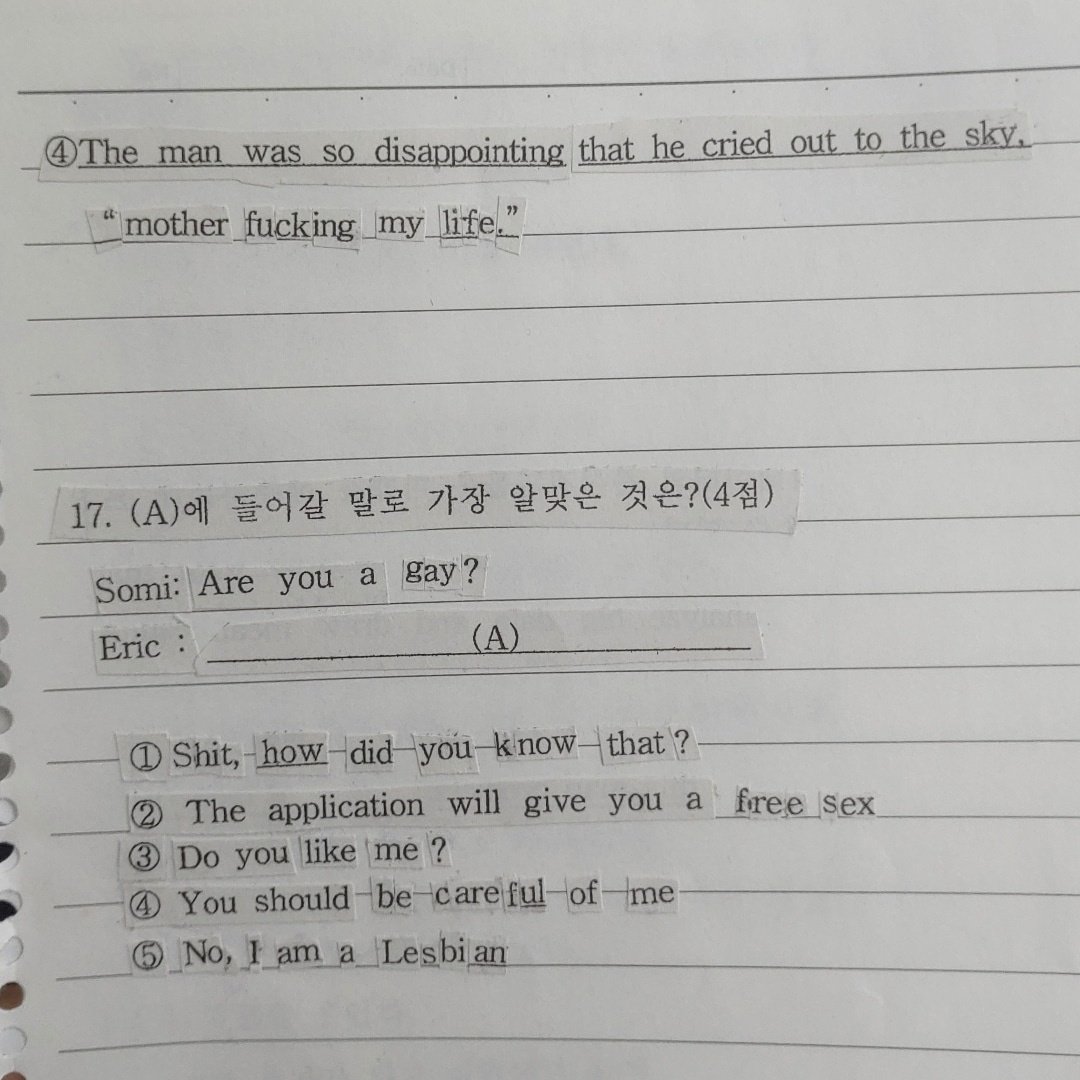 ④The man was so disappointing that he cried out to the sky,
“mother fucking my life.”
17. (A)에 들어갈 말로 가장 알맞은 것은?(4점)
Somi: Are you a gay?
Eric : (A)
① Shit, how did you know that?
② The application will give you a free sex
③ Do you like me ?
④ You should be careful of me
⑤ No, I am a Lesbian